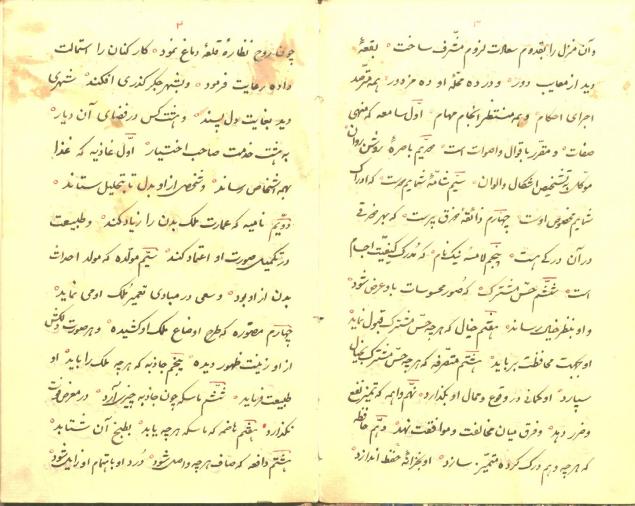 ۳
وآن منزل را بقدوم سعادت لزوم مشرف ساخت بقعهٔ
دید از معایب دور و در ده محله او ده مزدور همه مترصد
اجرای احکام و همه منتظر انجام مهام اول سامعه که منهی
صفات و مقرر باقوال واصوات است دویم باصرهٔ روشن روان
موکل بر تشخیص اشکال والوان سیم شامهٔ که ادراک
شمایم مخصوص اوست چهارم ذائقهٔ
در آن درکه است پنجم لامسه نیک نام که مدرک کیفیت اجسام
است ششم حس مشترک که صور محسوسات بادو عرض شود
واو بنظر خیال رساند هفتم خیال که هرچه حس مشترک قبول نماید
او بجهت محافظت برباید هشتم متصرفه که هرچه حس مشترک بخیال
سپارد او در وقوع و محال او بگذارد نهم واهمه که تمیز نفع
وضرر دهد و فرق میان مخالفت و موافقت نهد دهم حافظه
که هرچه وهم درک کرده متمیز سازد او بخزانهٔ حفظ اندازد
۲
چون روح نظارهٔ قلعهٔ دماغ نمود کارکنان را استمالت
داده رعایت فرمود و بشهر جگر گذری افکند شهری
دید بغایت دل پسند و هشت کس در فضای آن دیار
به هشت خدمت صاحب اختیار اول غاذیه که غذا
بهمه اشخاص رساند و شخصی از او بدل ما یتحلل ستاند
دویم نامیه که عمارت ملک بدن را زیاد کند و طبیعت
در تکمیل صورت او اعتماد کند سیم مولده که مولد احداث
بدن از او بود و سعی در مبادی تعمیر ملک اومی نماید
چهارم مصوره که طرح اوضاع ملک او کشیده و هر صورت دلکش
از او زینت ظهور دیده پنجم جاذبه که هرچه ملک را باید او
طبیعت رباید ششم ماسکه چون جاذبه چیزی آرد در معرض فوت
نگذارد هفتم هاضمه که ماسکه هرچه یابد بطبخ آن شتابد
هشتم دافعه که صاف هرچه واصل شود درد او باهتمام او زایل شود